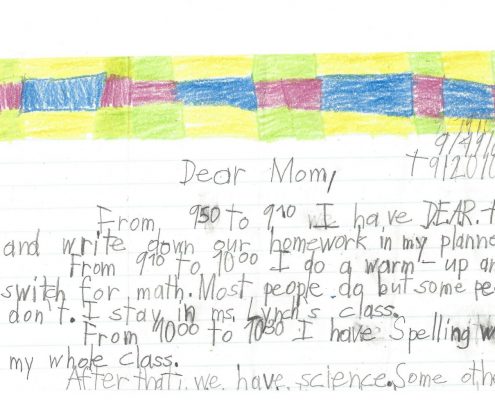 Dear Mom,
From 950 to 910 I have DEAR. t
and write down our homework in my planne
From 910 to 1000 I do a warm-up an
switch for math. Most people do but some pe
don't. I stay in ms. Lynch's class.
From 1000 to 1030 I have Spelling w
my whole class.
After that, we have science. Some othe